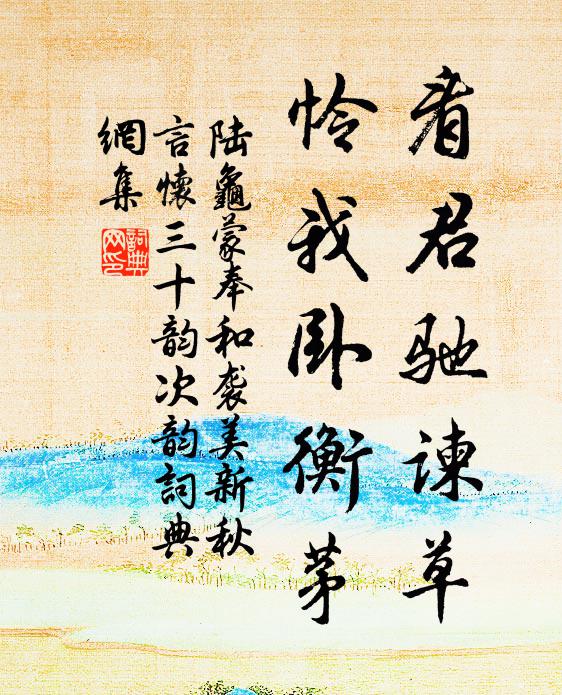 看君驰谏草
怜我卧衡茅
陆龜蒙奉和袭美新秋
言懷三十韵次韵詞典
網集
詞典
网印